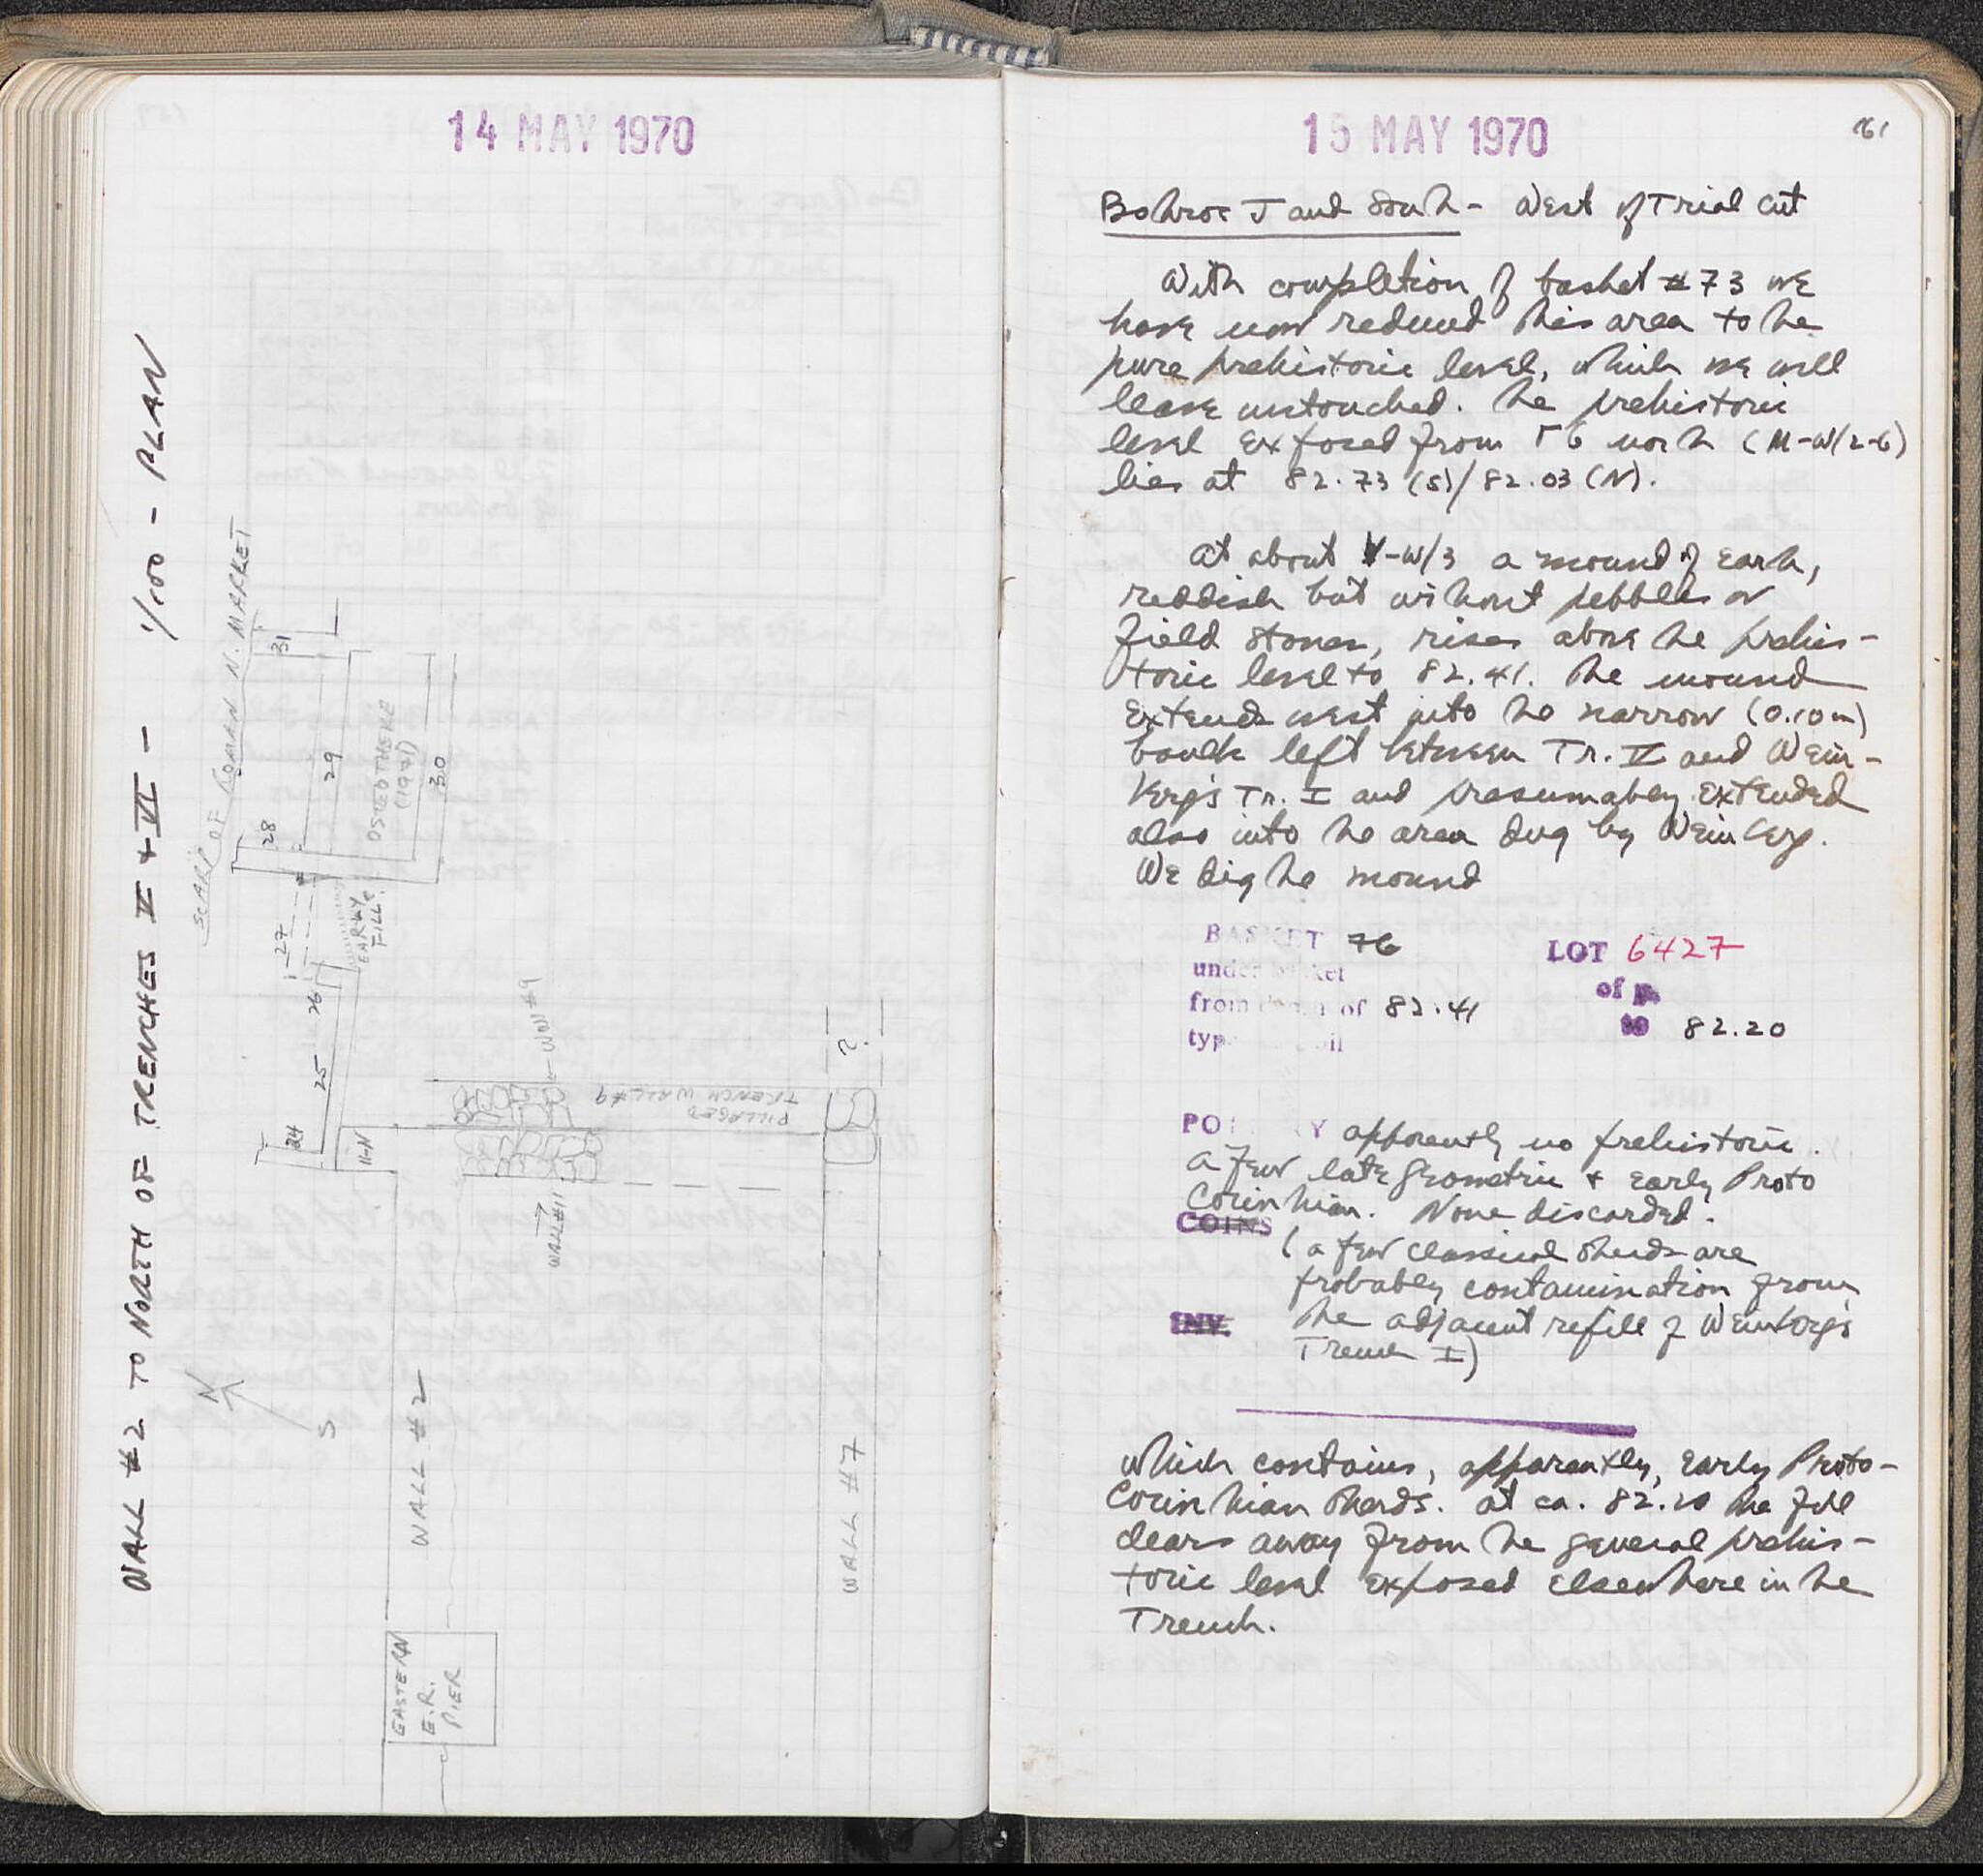 14 MAY 1970
WALL #2 TO NORTH OF TRENCHES V + VI - 1/100 - PLAN
SCARP OF ROMAN N. MARKET
31
29
OSTEOTHEKE
(1971)
30
28
27
EARLY
FILL
26
25
24
11-N
WALL #9
PILLAGED
TRENCH WALL #9
?
WALL #11
N
S
WALL #2
WALL #7
EASTERN
E.R.
PIER
15 MAY 1970
161
Bothros J and South - West of Trial Cut
With completion of basket #73 we
have now reduced this area to the
pure prehistoric level, which we will
leave untouched. The prehistoric
level exposed from Γ6 north (M-W/2-6)
lies at 82.73 (S)/82.03 (N).
At about V-W/3 a mound of earth,
reddish but without pebbles or
field stones, rises above the prehis-
toric level to 82.41. The mound
extends west into the narrow (0.10m)
baulk left between Tr. V and Wein-
berg's Tr. I and presumably extended
also into the area dug by Weinberg.
We dig the mound
BASKET 76
LOT 6427
under basket
of p.
from depth of 82.41
to 82.20
type of soil
POTTERY apparently no prehistoric.
a few late Geometric + Early Proto
Corinthian. None discarded.
COINS
(a few classical sherds are
probably contamination from
INV.
the adjacent refill of Weinberg's
Trench I)
which contains, apparently, Early Proto-
Corinthian sherds. At ca. 82.20 the fill
clears away from the general prehis-
toric level exposed elsewhere in the
Trench.